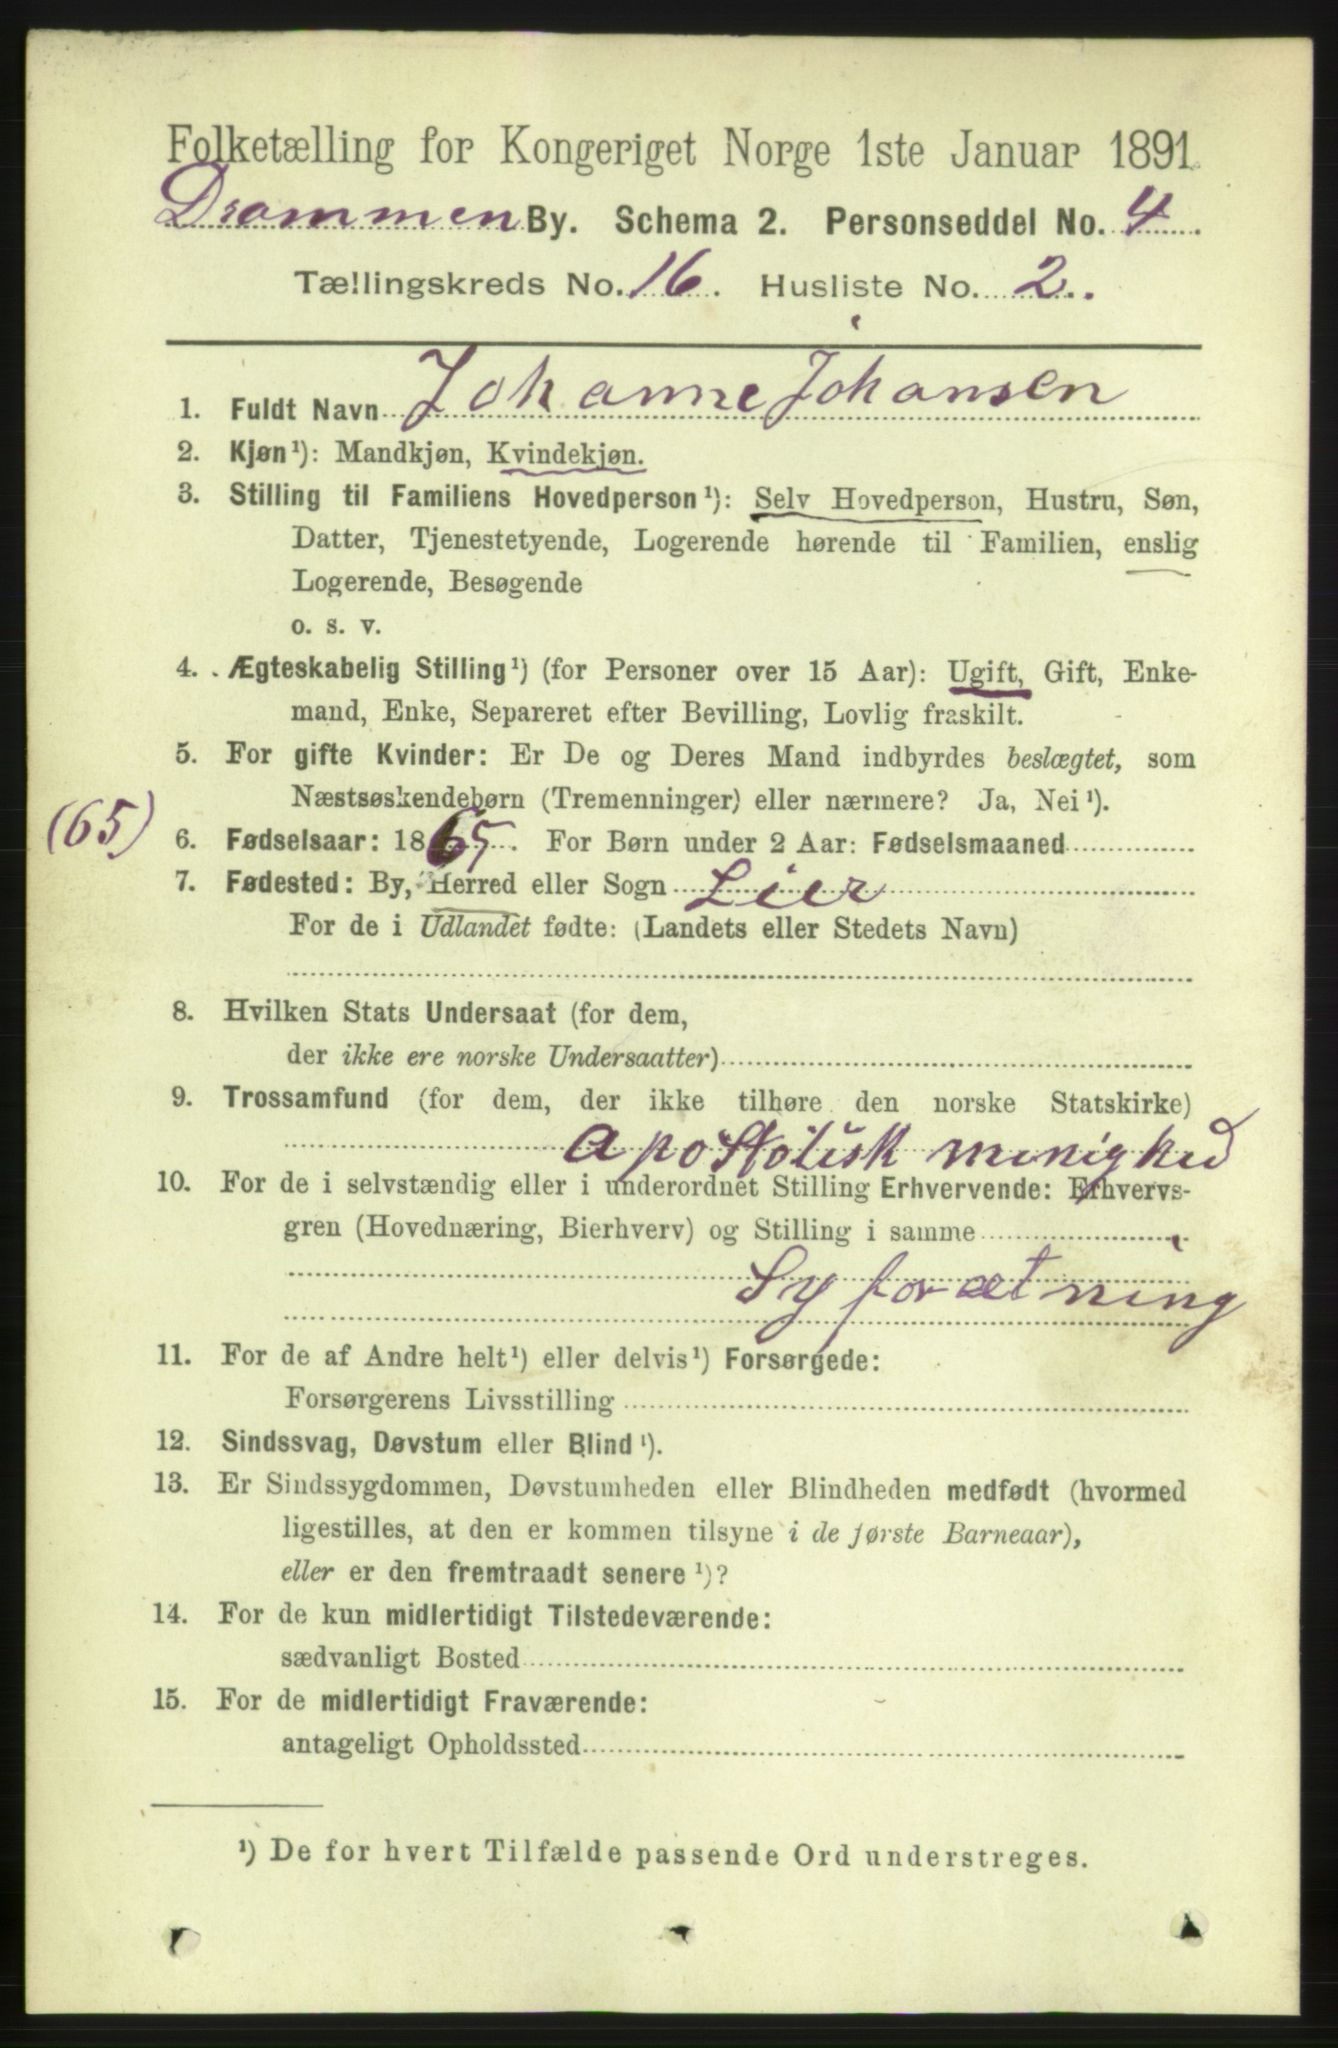 Folketælling for Kongeriget Norge 1ste Januar 1891.
Drammen By. Schema 2. Personseddel No. 4.
Tællingskreds No. 16. Husliste No. 2.
1. Fuldt Navn Johanne Johansen
2. Kjøn¹): Mandkjøn, Kvindekjøn.
3. Stilling til Familiens Hovedperson¹): Selv Hovedperson, Hustru, Søn,
Datter, Tjenestetyende, Logerende hørende til Familien, enslig
Logerende, Besøgende
o. s. v.
4. Ægteskabelig Stilling¹) (for Personer over 15 Aar): Ugift, Gift, Enke-
mand, Enke, Separeret efter Bevilling, Lovlig fraskilt.
5. For gifte Kvinder: Er De og Deres Mand indbyrdes beslægtet, som
Næstsøskendebørn (Tremenninger) eller nærmere? Ja, Nei¹).
(65) 6. Fødselsaar: 1865. For Børn under 2 Aar: Fødselsmaaned
7. Fødested: By, Herred eller Sogn Lier
For de i Udlandet fødte: (Landets eller Stedets Navn)
8. Hvilken Stats Undersaat (for dem,
der ikke ere norske Undersaatter)
9. Trossamfund (for dem, der ikke tilhøre den norske Statskirke)
apostolisk menighed
10. For de i selvstændig eller i underordnet Stilling Erhvervende: Erhvervs-
gren (Hovednæring, Bierhverv) og Stilling i samme
Syforætning
11. For de af Andre helt¹) eller delvis¹) Forsørgede:
Forsørgerens Livsstilling
12. Sindssvag, Døvstum eller Blind¹).
13. Er Sindssygdommen, Døvstumheden eller Blindheden medfødt (hvormed
ligestilles, at den er kommen tilsyne i de første Barneaar),
eller er den fremtraadt senere¹)?
14. For de kun midlertidigt Tilstedeværende:
sædvanligt Bosted
15. For de midlertidigt Fraværende:
antageligt Opholdssted
¹) De for hvert Tilfælde passende Ord understreges.